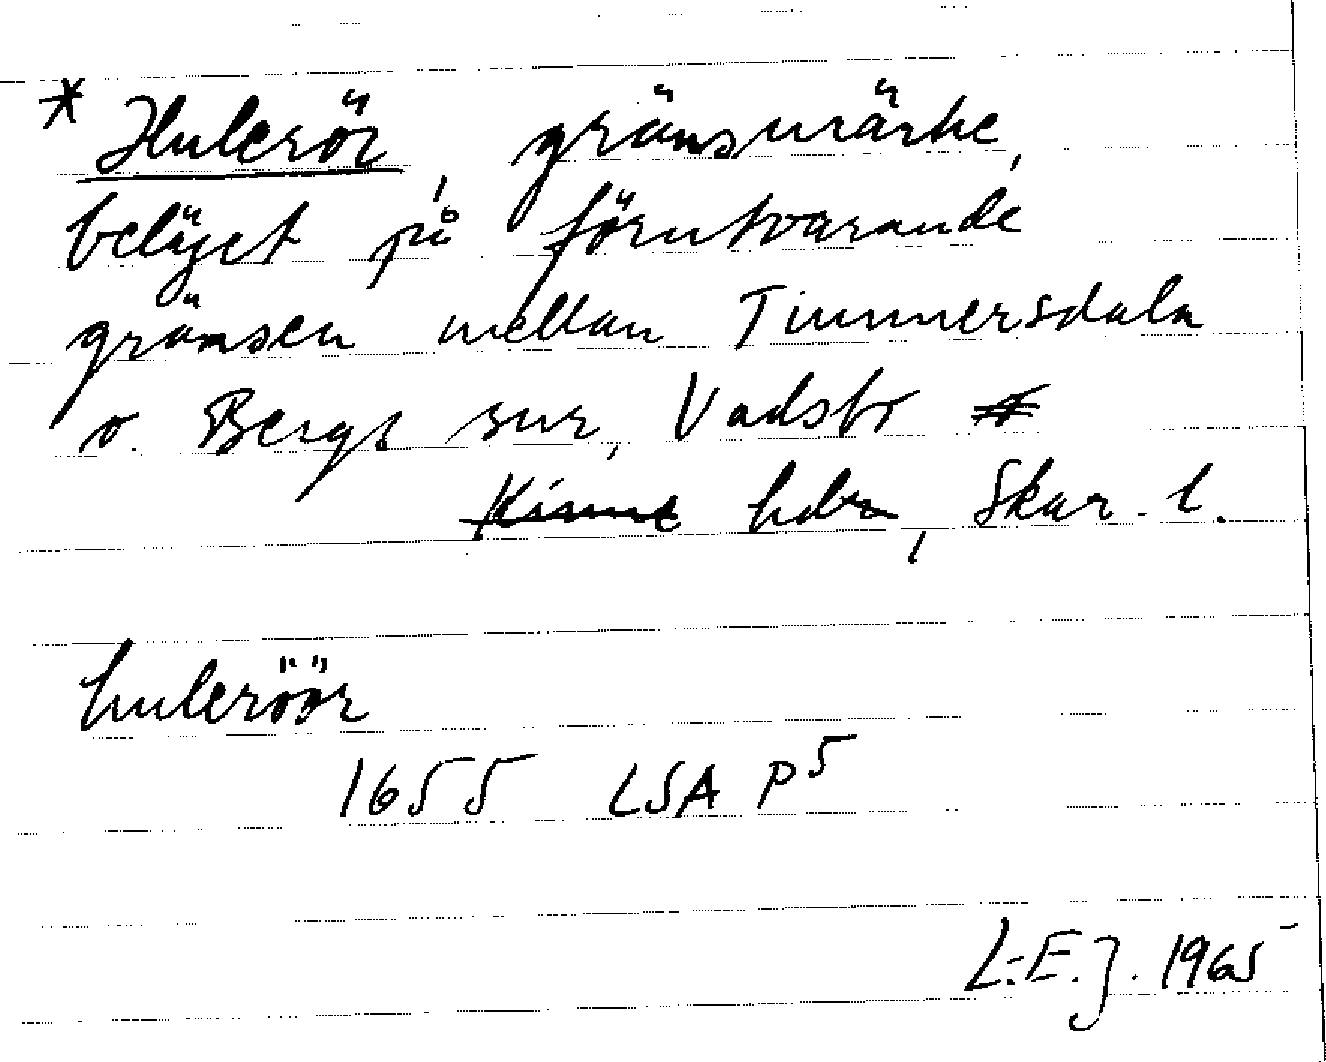 * Hulerör, gränsmärke,
beläget på förutvarande
gränsen mellan Timmersdala
o. Bergs snr, Vadsbo
Kinne hdr, Skar. l.
huleröör
1655 LSA P5
L-E.J. 1965